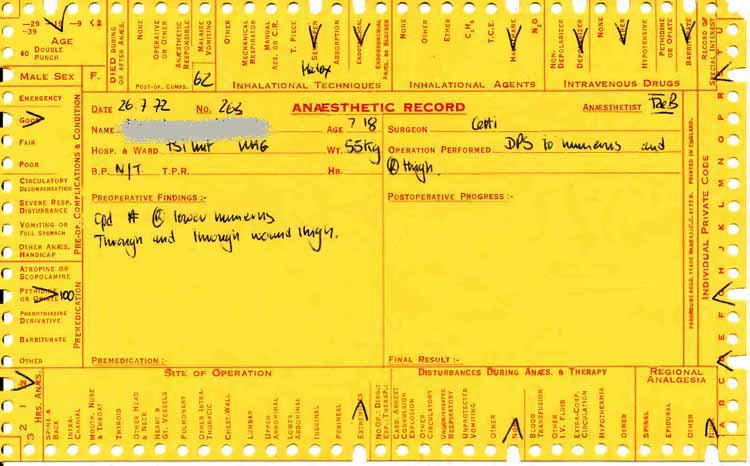 —29—19—9 <2
—39
AGE
40 DOUBLE PUNCH
DIED DURING OR AFTER ANÆS.
NONE
OPERATIVE OR OTHER
ANÆSTHETIC RESPONSIBLE
MALAISE VOMITING
OTHER
POST-OP. COMPS. 62
MECHANICAL RESPIRATOR
MANUAL ASS. OR C.R.
T. PIECE
ABSORPTION
ENDOTRACHEAL
ENDOBRONCHIAL ANÆS. OR BLOCKER
INHALATIONAL TECHNIQUES
NONE
OTHER
ETHER
C₃H₆
T.C.E.
HALOTHANE
N₂O
INHALATIONAL AGENTS
NON-DEPOLARIZER
DEPOLARIZER
NONE
OTHER
HYPOTENSIVE
PETHIDINE OR OPIATE
BARBITURATE
INTRAVENOUS DRUGS
RECORD OF SPECIAL INTEREST
MALE SEX F.
EMERGENCY
GOOD
FAIR
POOR
CIRCULATORY DECOMPENSATION
SEVERE RESP. DISTURBANCE
VOMITING OR FULL STOMACH
OTHER ANÆS. HANDICAP
PRE-OP. COMPLICATIONS & CONDITION
ATROPINE OR SCOPOLAMINE
PETHIDINE OR OPIATE 100
PHENOTHIAZINE DERIVATIVE
BARBITURATE
OTHER
PREMEDICATION
DATE 26.7.72 NO. 268 ANÆSTHETIC RECORD ANÆSTHETIST
NAME AGE ? 18 SURGEON
HOSP. & WARD WT. 55kg OPERATION PERFORMED DPS to humerus and
B.P. N/T T.P.R. HB. Ⓡ thigh.
PREOPERATIVE FINDINGS :-
Cpd # Ⓡ lower humerus
Through and through wound thigh.
PREMEDICATION :-
POSTOPERATIVE PROGRESS :-
FINAL RESULT :-
PRINTED IN ENGLAND.
INDIVIDUAL PRIVATE CODE
A B C D E F G H J K L M N O P R S T U
3 2 1 HRS. ANÆS.
SITE OF OPERATION
SPINE & BACK
INTRA-CRANIAL
MOUTH, NOSE & THROAT
THYROID
OTHER HEAD & NECK
HEART & GT. VESSELS
PULMONARY
OTHER INTRA-THORACIC
CHEST-WALL
LUMBAR
UPPER ABDOMINAL
LOWER ABDOMINAL
INGUINAL
PERINEAL
EXTREMITIES
DISTURBANCES DURING ANÆS. & THERAPY
CARD. ARREST CONVULSION EXPLOSION
OTHER CIRCULATORY
UNDERHANDED RESPIRATORY
UNPROVOKED VOMITING
OTHER
NONE
BLOOD TRANSFUSION
OTHER I.V. FLUID
EXTRA-CORP. CIRCULATION
HYPOTHERMIA
OTHER
REGIONAL ANALGESIA
SPINAL
EPIDURAL
OTHER